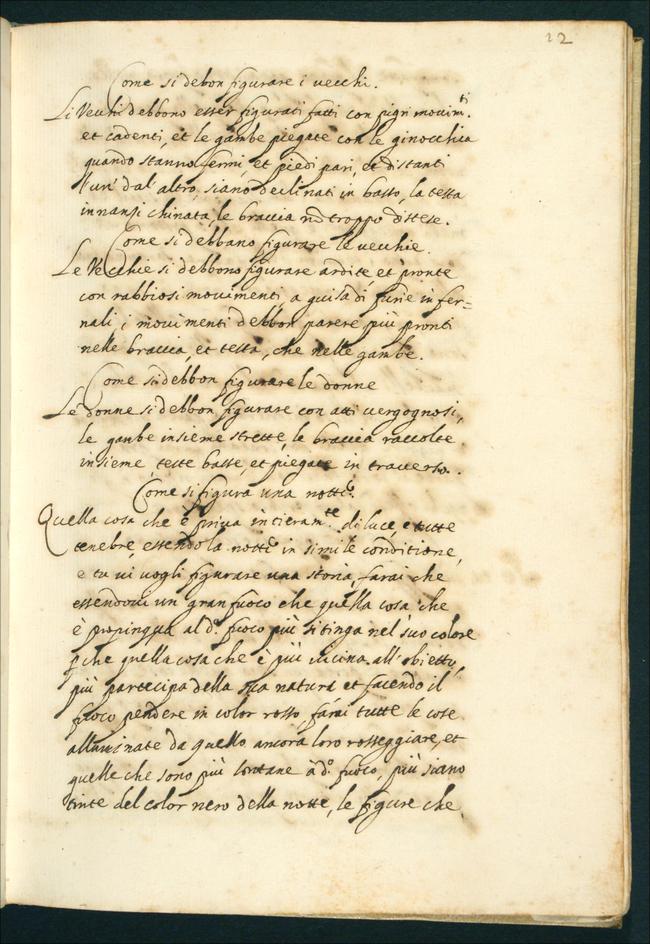 22
Come si debon figurare i vecchi.
Li Vecchi debbono esser figurati fatti con pigri movim.ti
et cadenti, et le gambe piegate con le ginocchia
quando stanno fermi, et piedi pari, et distanti
l'un' dal' altro, siano declinati in basso, la testa
innanzi chinata, le braccia nõ troppo distese.
Come si debbano figurare le vecchie.
Le Vecchie si debbono figurare ardite, et pronte
con rabbiosi movimenti, a guisa di furie infer=
nali, i movimenti debbon parere più pronti
nelle braccia, et testa, che nelle gambe.
Come si debbon figurare le donne
Le donne si debbon figurare con atti vergognosi,
le gambe insieme strette, le braccia raccolte
insieme, teste basse, et piegate in traverso.
Come si figura una notte.
Quella cosa che è priva intieram.te di luce, e tutte
tenebre, essendo la notte in simile conditione,
e tu vi vogli figurare una storia, farai che
essendovi un gran fuoco che quella cosa che
è propinqua al d.o fuoco più si tinga nel suo colore
p̱che quella cosa che è più vicina all' obietto,
più partecipa della sua natura et facendo il
fuoco pendere in color rosso, farai tutte le cose
alluminate da quello ancora loro rosseggiare, et
quelle che sono più lontane à d.o fuoco, più siano
tinte del color nero della notte, le figure che